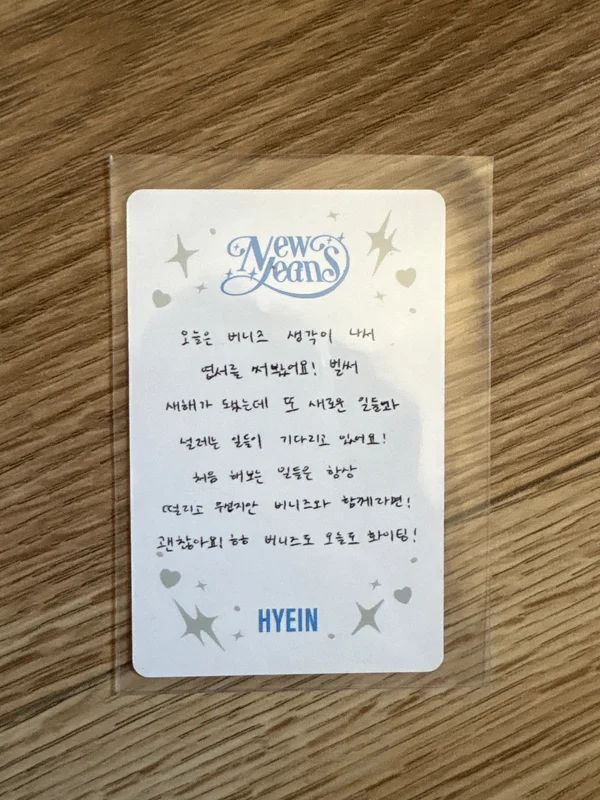 New
Jeans
오늘은 버니즈 생각이 나서
엽서를 써봤어요! 벌써
새해가 됐는데 또 새로운 일들과
설레는 일들이 기다리고 있어요!
처음 해보는 일들은 항상
떨리고 무섭지만 버니즈와 함께라면!
괜찮아요! ㅎㅎ 버니즈도 오늘도 화이팅!
HYEIN